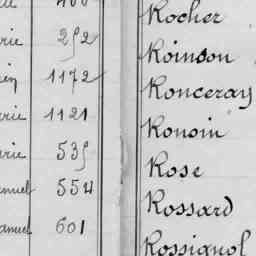 Rocher
rie 252
Roinson
1172
Ronceray
rie 1121
Ronsin
rie 535
Rose
anuel 554
Rossard
anuel 601
Rossignol